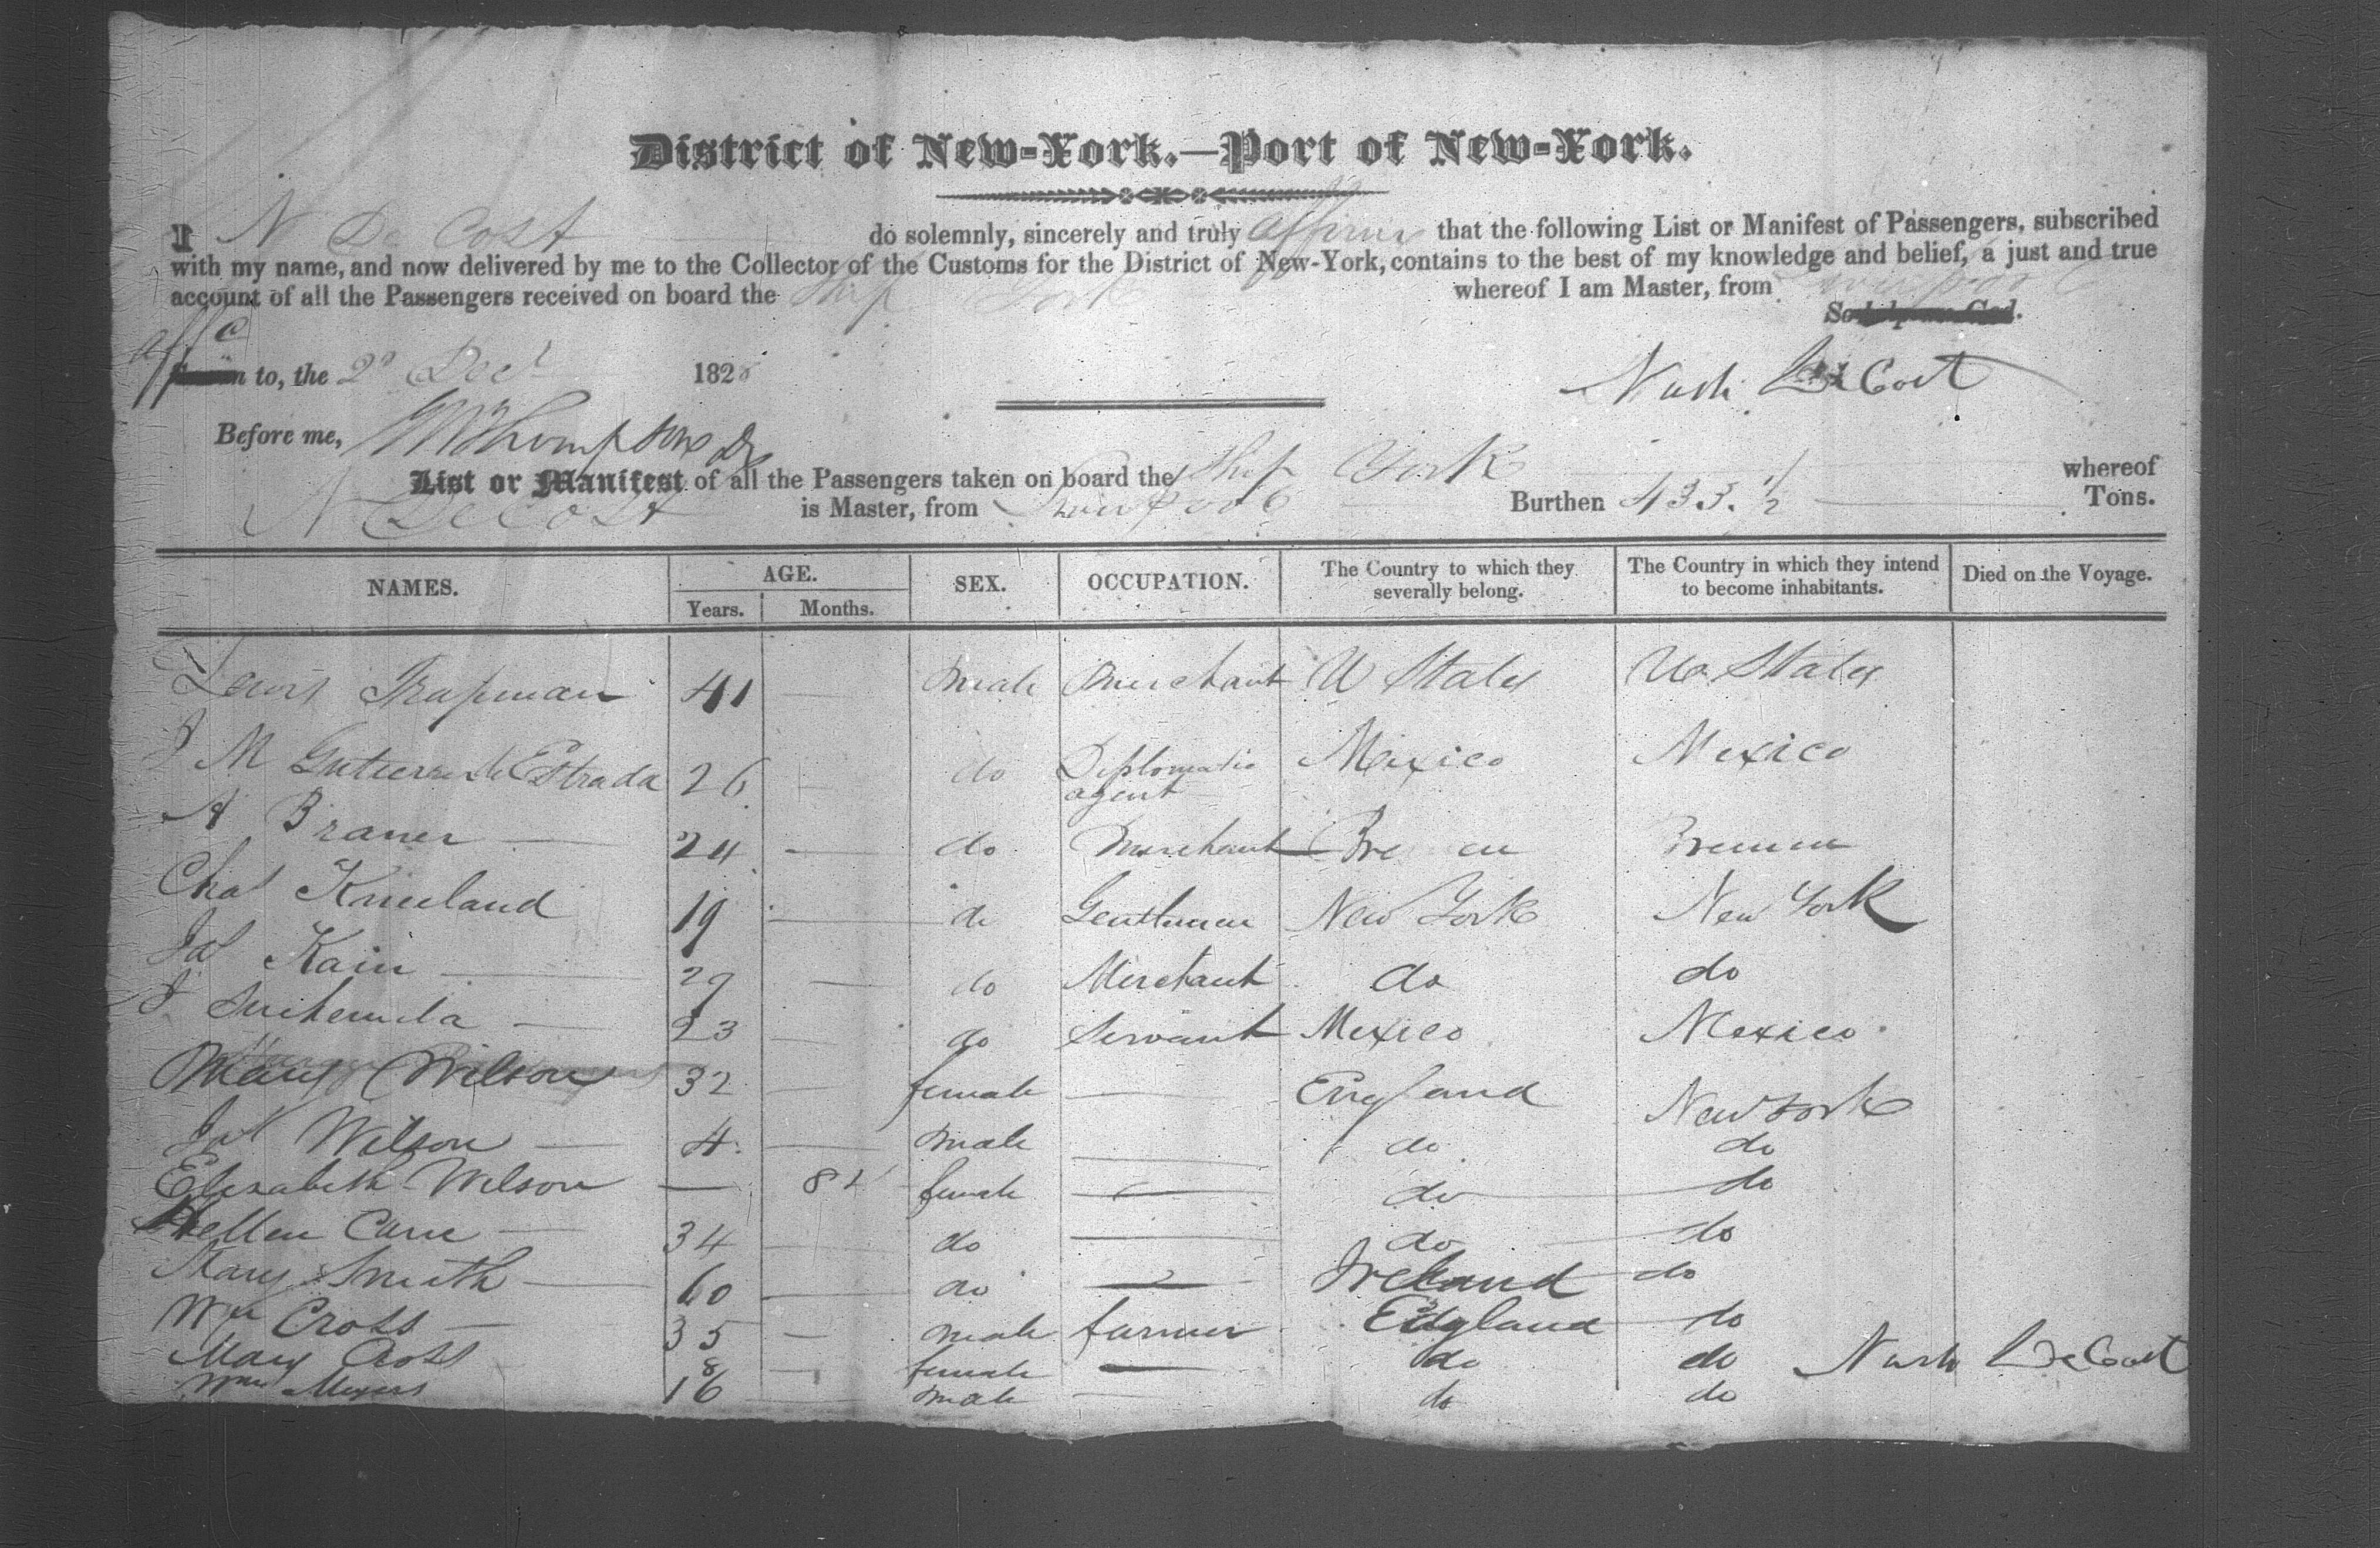 District of New-York.—Port of New-York.
I N De Cost do solemnly, sincerely and truly affirm that the following List or Manifest of Passengers, subscribed
with my name, and now delivered by me to the Collector of the Customs for the District of New-York, contains to the best of my knowledge and belief, a just and true
account of all the Passengers received on board the Ship York whereof I am Master, from Liverpool
So help me God.
affd
Sworn to, the 2d Decr 182
Nash De Cost
Before me, Thompson
List or Manifest of all the Passengers taken on board the Ship York whereof
N De Cost is Master, from Liverpool Burthen 433. 1/2 Tons.
NAMES. AGE. Years. Months. SEX. OCCUPATION. The Country to which they severally belong. The Country in which they intend to become inhabitants. Died on the Voyage.
Lewis Trapman 41 — male Merchant U States U States
J M Gutierrez de Estrada 26 — do Diplomatic agent Mexico Mexico
A Braner — 24 — do Merchant Bremen Bremen
Chas Kneeland 19 — do Gentleman New York New York
Jas Kain — 29 — do Merchant do do
J — 23 — do Servant Mexico Mexico
Mary Wilson 32 — female — England New York
Jas Wilson — 4 — male — do do
Elizabeth Wilson — 8 female — do do
Hellen Cane — 34 — do — do do
Mary Smith — 60 — do — Ireland do
Wm Cross — 35 — male farmer England do
Mary Cross 8 — female — do do Nash De Cost
Wm Meyers 16 — male — do do